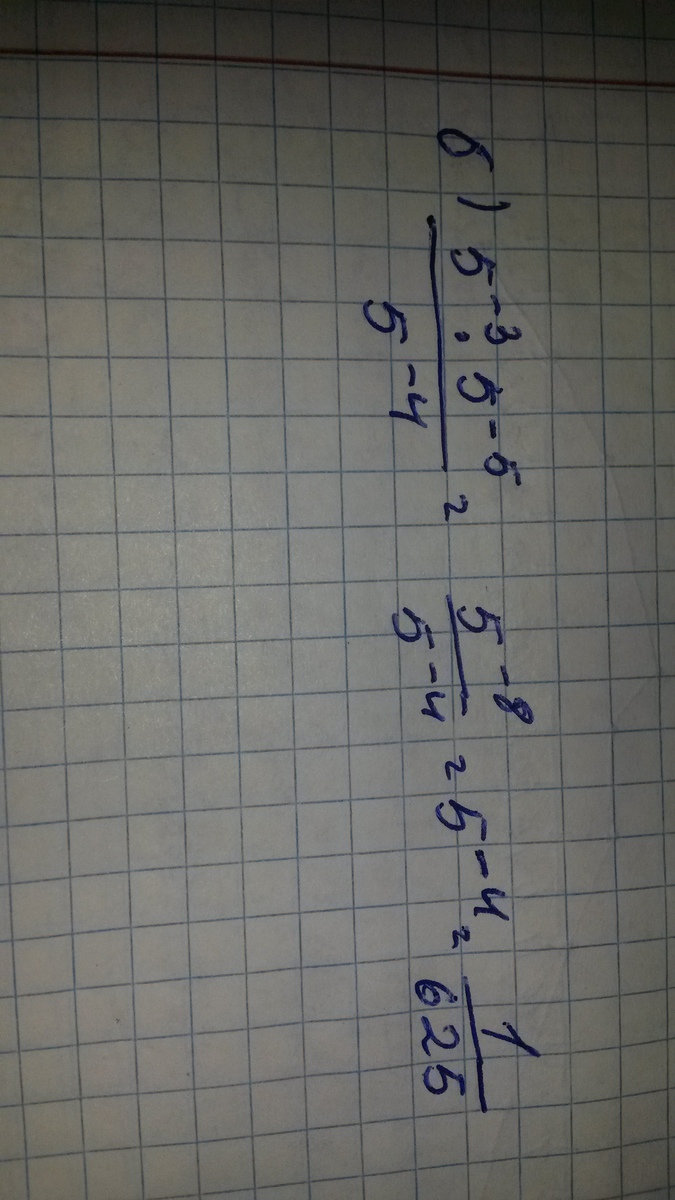 б) \frac{5^{-3} \cdot 5^{-5}}{5^{-4}} = \frac{5^{-8}}{5^{-4}} = 5^{-4} = \frac{1}{625}